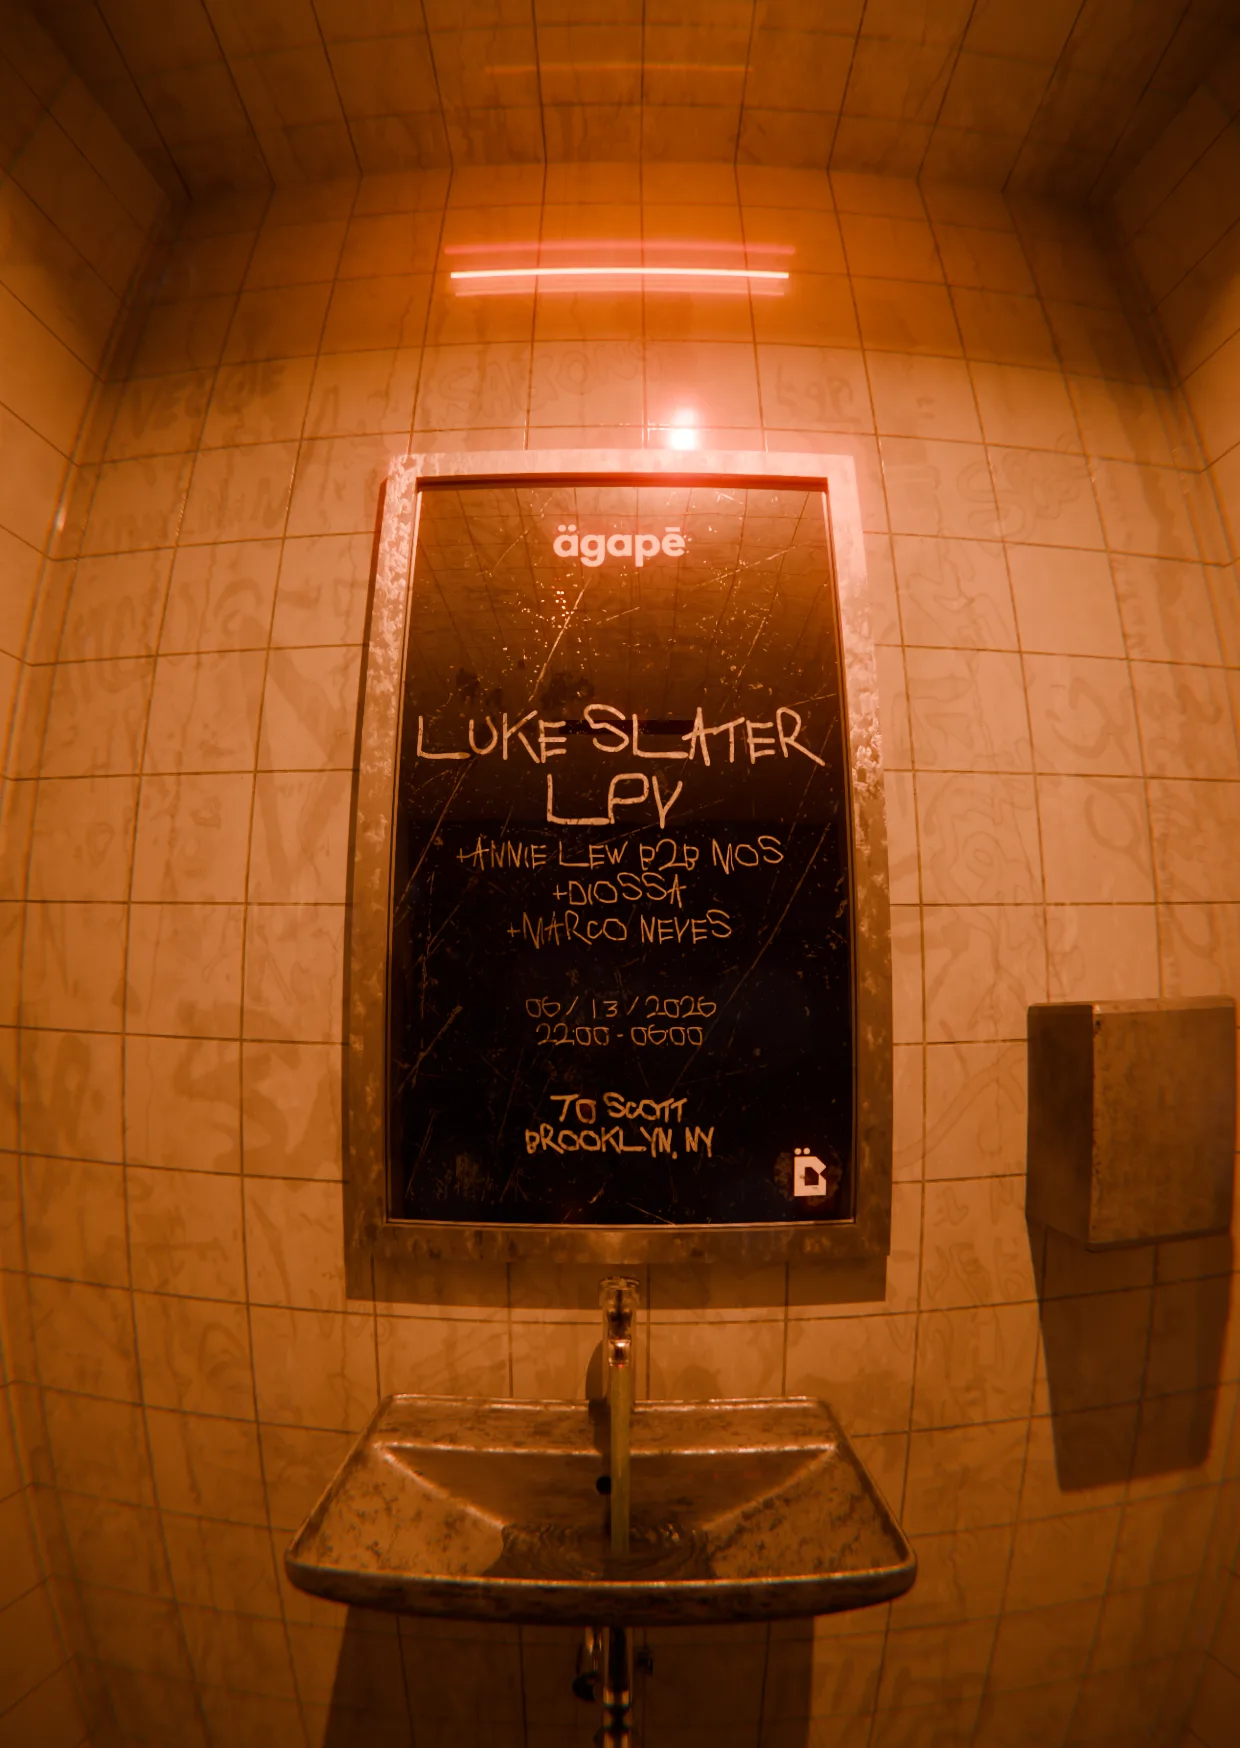 ägapē
LUKE SLATER
LPV
+ANNIE LEW B2B MOS
+DIOSSA
+MARCO NEVES
06/13/2026
22:00-06:00
TO SCOTT
BROOKLYN, NY